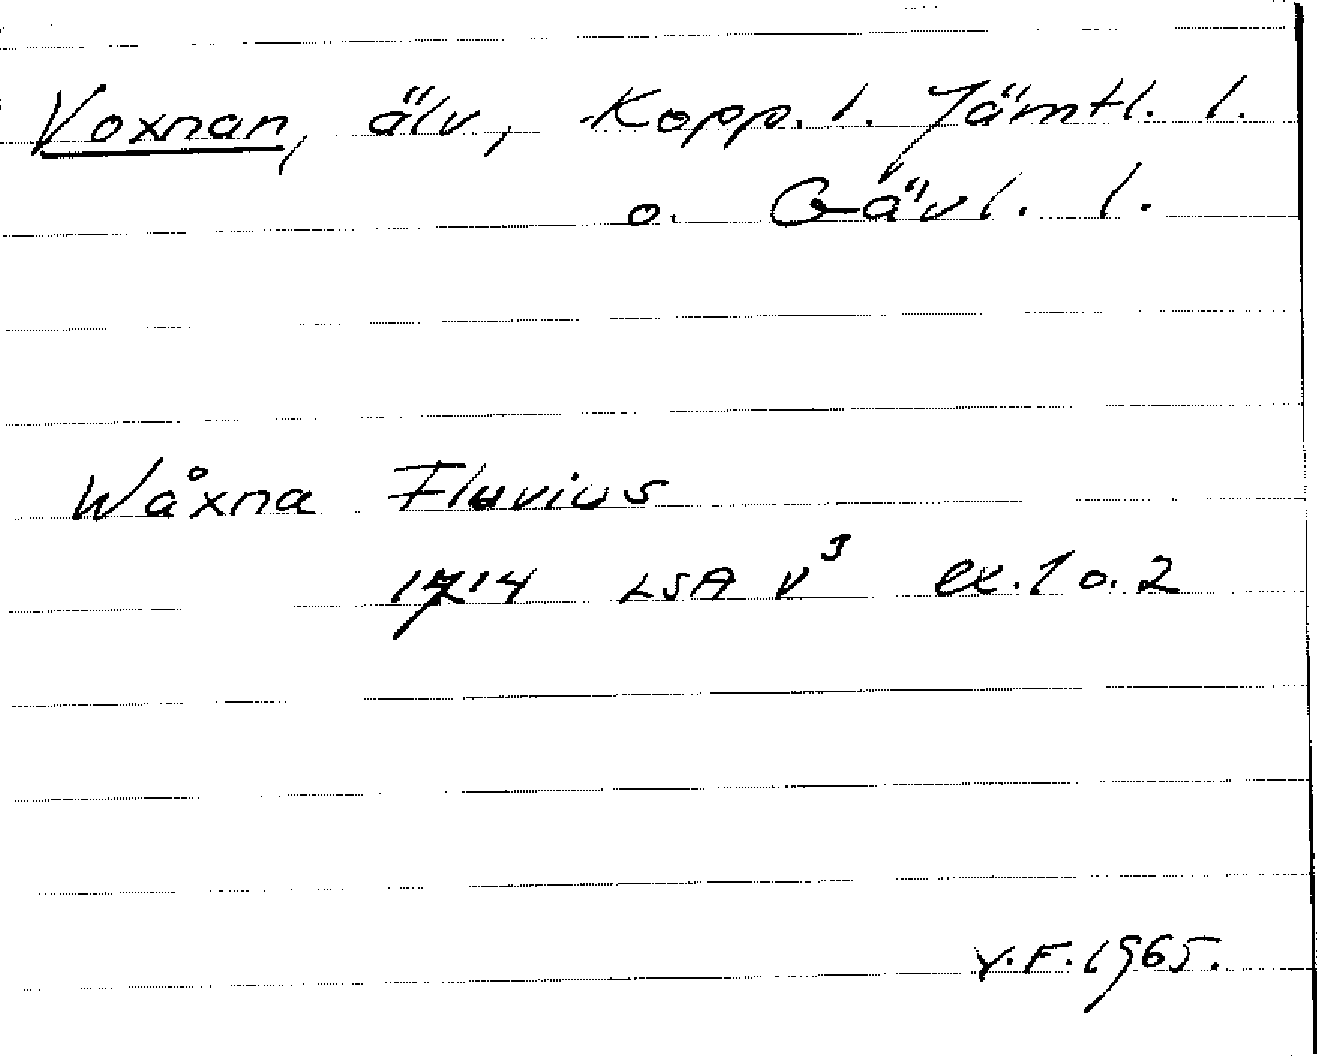 Voxnan, älv, Kopp. l. Jämtl. l.
o. Gävl. l.
Wåxna Fluvius
1714 LSA V³ ex. 1 o. 2
Y.F. 1965.